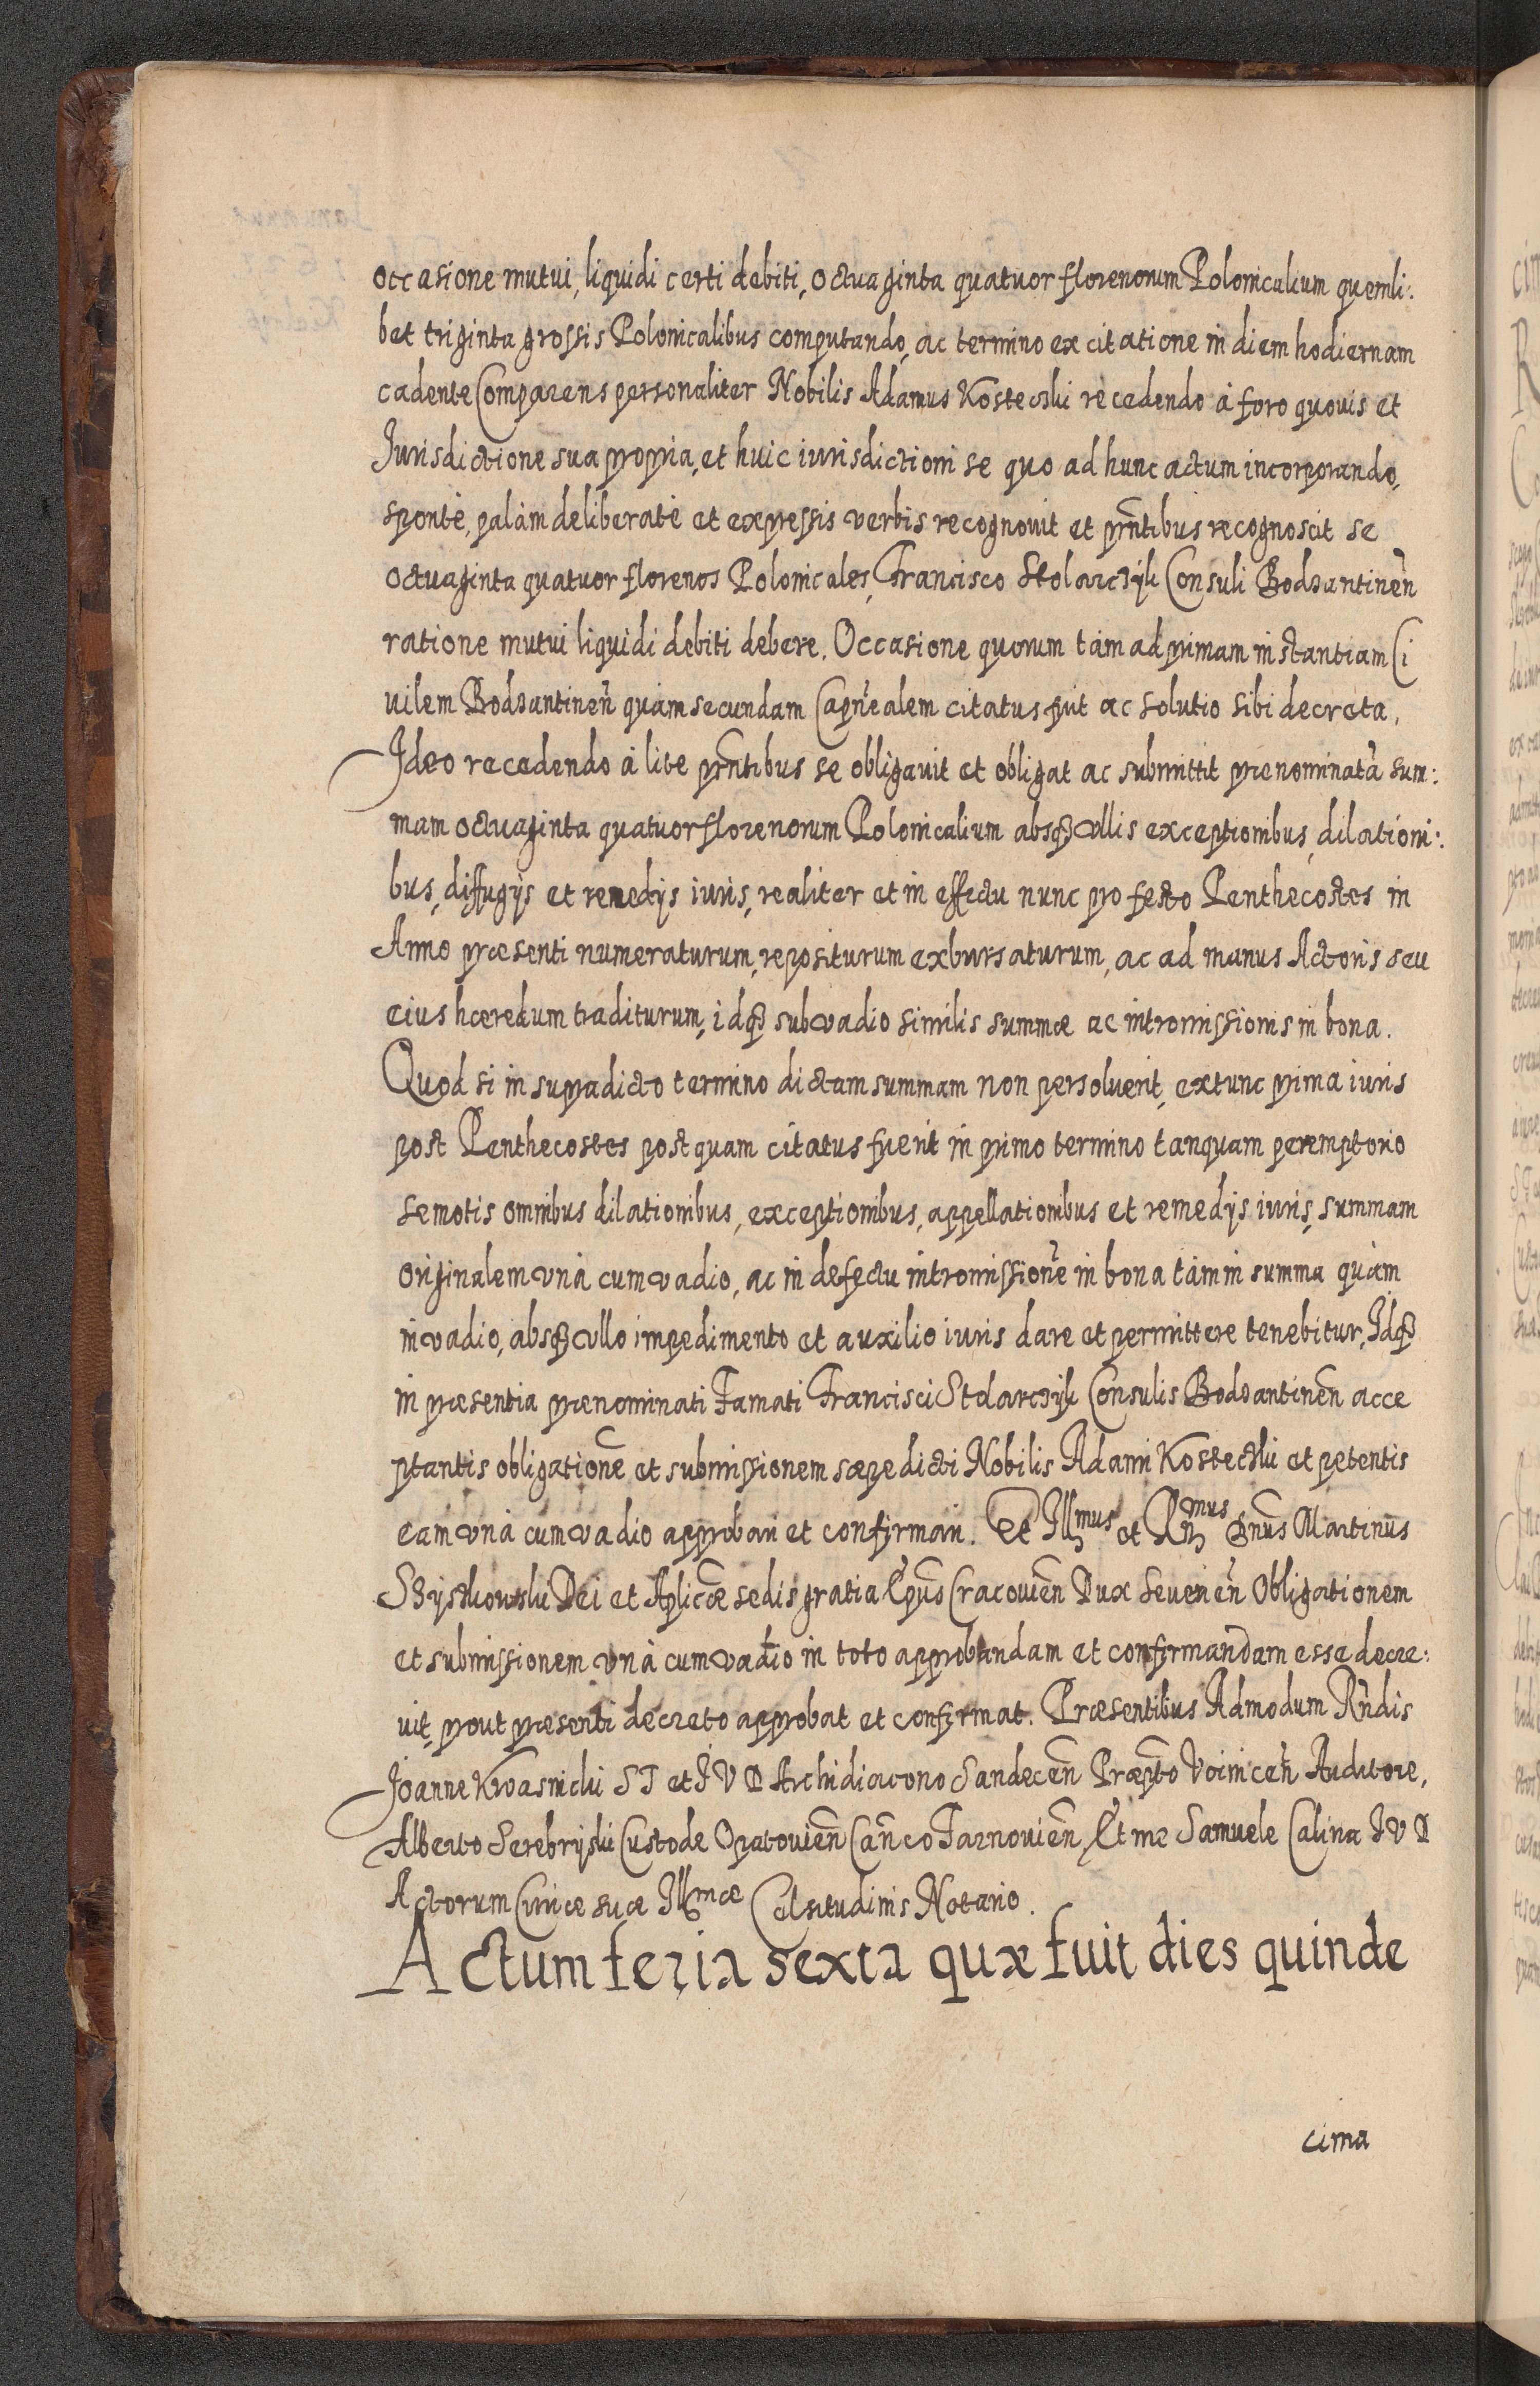 occasione mutui, liquidi certi debiti, octuaginta quatuor florenorum Polonicalium quemli:
bet triginta grossis Polonicalibus computando, ac termino ex citatione in diem hodiernam
cadente Comparens personaliter Nobilis Adamus Kosteczki recedendo à foro quouis et
Iurisdictione sua propria, et huic iurisdictioni se quo ad hunc actum incorporando,
sponte, palàm deliberatè et expressis verbis recognouit et pñtibus recognoscit se
octuaginta quatuor florenos Polonicales, Francisco Stolarczÿk Consuli Bodzantineñ
ratione mutui liquidi debiti debere. Occasione quorum tàm ad primam instantiam Ci
uilem Bodzantineñ quàm secundam Capñealem citatus fuit ac solutio sibi decreta,
Ideo recedendo à lite pñtibus se obligauit et obligat ac submittit prenominatã sum:
mam octuaginta quatuor florenorum Polonicalium absq̃ vllis exceptionibus, dilationi:
bus, diffugijs et remedijs iuris, realiter et in effectu nunc pro festo Penthecostes in
Anno præsenti numeraturum, repositurum exbursaturum, ac ad manus Actoris seu
eius hæredum traditurum, idq̃ sub vadio similis summæ ac intromissionis in bona.
Quod si in supradicto termino dictam summam non persoluerit, extunc prima iuris
post Penthecostes postquam citatus fuerit in primo termino tanquam peremptorio
semotis omnibus dilationibus, exceptionibus, appellationibus et remedijs iuris, summam
originalem vnà cum vadio, ac in defectu intromissionẽ in bona tàm in summa quàm
in vadio, absq̃ vllo impedimento et auxilio iuris dare et permittere tenebitur, Idq̃
in præsentia prænominati Famati Francisci Stolarczÿk Consulis Bodzantineñ acce
ptantis obligationẽ et submissionem sæpe dicti Nobilis Adami Kosteczki et petentis
eam vnà cum vadio approbari et confirmari. Et Illmus et Rñmus Dnũs Martinus
Szÿszkowski Dei et Aplicæ sedis gratia Epũs Cracouieñ Dux Seuerieñ Obligationem
et submissionem vnà cum vadio in toto approbandam et confirmandam esse decre:
uit, prout præsenti decreto approbat et confirmat. Præsentibus Admodum Rñdis
Joanne Kwasnicki ST et I V D Archidiacono Sandeceñ Præpto Voiniceñ Auditore,
Alberto Serebrÿski Custode Opatouieñ Cañco Tarnouieñ, Et me Samuele Calina I V D
Actorum Curiæ suæ Illmæ Celsitudinis Notario.
Actum feria sexta quæ fuit dies quinde
cima